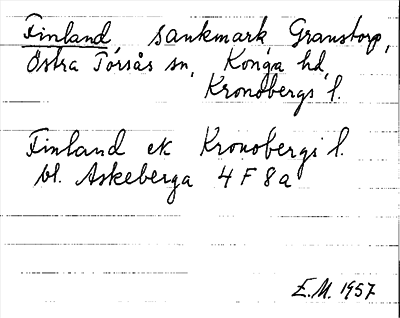 Finland, sankmark Granstorp,
Östra Torsås sn, Konga hd,
Kronobergs l.
Finland ek Kronobergs l.
bl. Askeberga 4 F 8 a
E.M. 1957